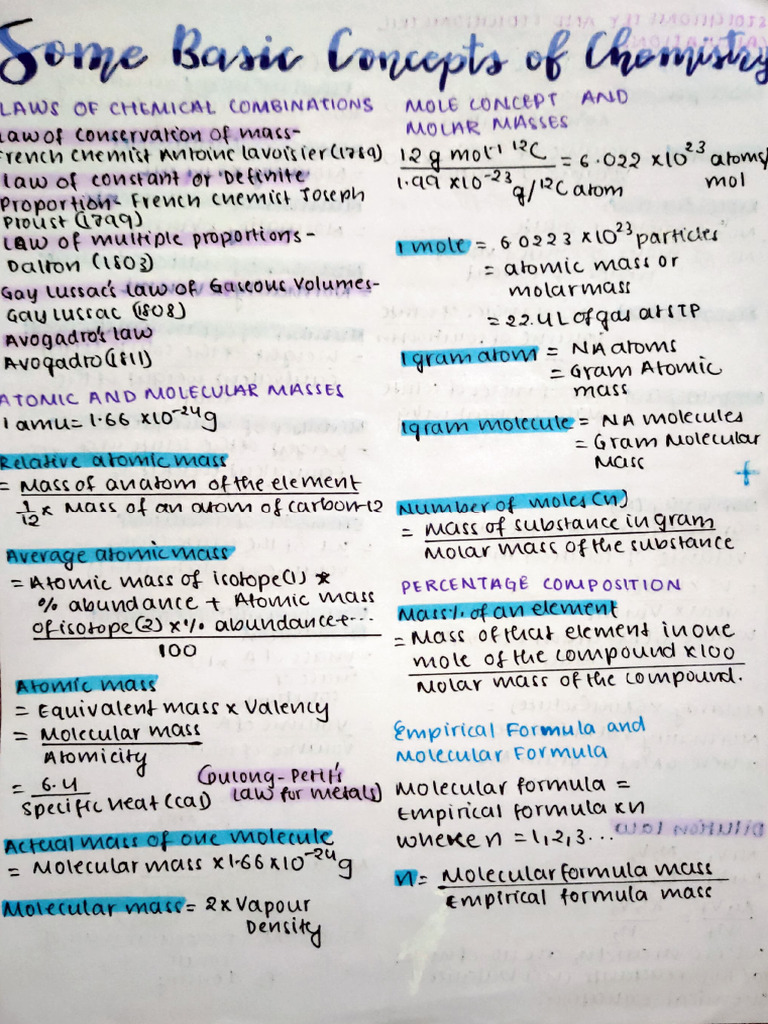 Some Basic Concepts of Chemistry
LAWS OF CHEMICAL COMBINATIONS
Law of conservation of mass-
French chemist Antoine Lavoisier (1789)
Law of constant or Definite
Proportion- French chemist Joseph
Proust (1799)
Law of multiple proportions-
Dalton (1803)
Gay Lussac's law of Gaseous Volumes-
Gay Lussac (1808)
Avogadro's law
Avogadro (1811)
ATOMIC AND MOLECULAR MASSES
1 amu = 1.66 x10⁻²⁴g
Relative atomic mass
= Mass of an atom of the element
1/12 x Mass of an atom of carbon-12
Average atomic mass
= Atomic mass of isotope(1) x
% abundance + Atomic mass
of isotope (2) x % abundance+...
100
Atomic mass
= Equivalent mass x Valency
= Molecular mass
Atomicity
= 6.4
Specific heat (cal)
(Dulong-Petit's
law for metals)
Actual mass of one molecule
= Molecular mass x 1.66 x10⁻²⁴g
Molecular mass = 2x Vapour
Density
MOLE CONCEPT AND
MOLAR MASSES
12 g mol⁻¹ ¹²C = 6.022 x10²³ atoms/
1.99 x10⁻²³ g/¹²C atom mol
1 mole = 6.0223 x10²³ particles
= atomic mass or
molar mass
= 22.4L of gas at STP
1 gram atom = NA atoms
= Gram Atomic
mass
1gram molecule = NA molecules
= Gram Molecular
Mass
+
Number of moles (n)
= Mass of substance in gram
Molar mass of the substance
PERCENTAGE COMPOSITION
Mass% of an element
= Mass of that element in one
mole of the compound x100
Molar mass of the compound.
Empirical Formula and
Molecular Formula
Molecular formula =
Empirical formula xn
where n = 1,2,3...
n = Molecular formula mass
Empirical formula mass